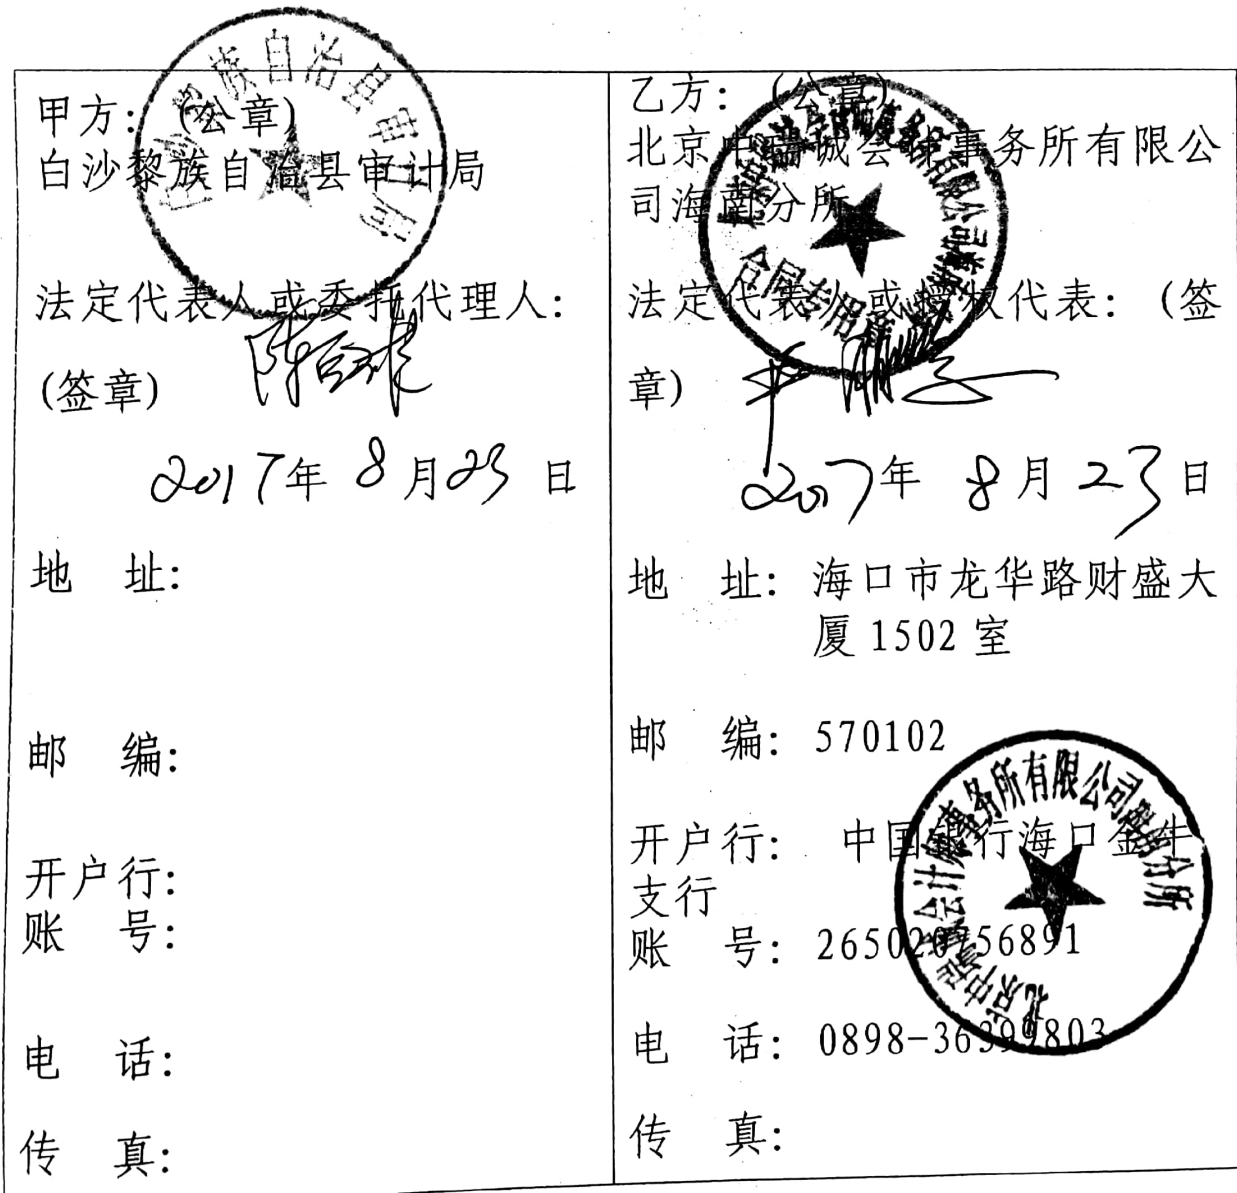 甲方：(公章)
白沙黎族自治县审计局
法定代表人或委托代理人：
(签章)
2017年 8月23日
地 址：
邮 编：
开户行：
账 号：
电 话：
传 真：
乙方：(公章)
北京中瑞诚会计师事务所有限公
司海南分所
法定代表人或授权代表：(签
章)
2017年 8月23日
地 址：海口市龙华路财盛大
厦1502室
邮 编：570102
开户行： 中国银行海口金牛
支行
账 号：
电 话：
传 真：
白沙黎族自治县审计局
合同专用章
北京中瑞诚会计师事务所有限公司海南分所